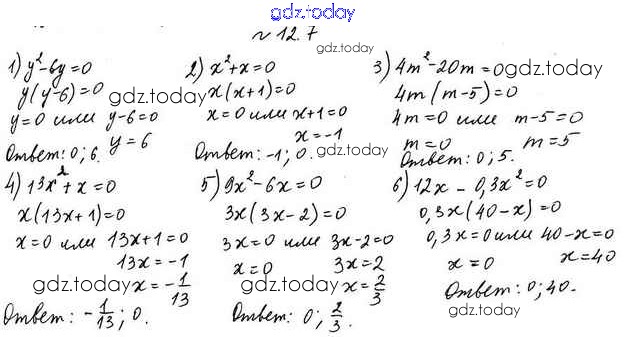 gdz.today
№ 12.7
gdz.today
1) y²-6y=0
y(y-6)=0
gdz.today
y=0 или y-6=0
y=6
Ответ: 0; 6.
2) x²+x=0
x(x+1)=0
x=0 или x+1=0
x=-1
Ответ: -1; 0.
gdz.today
3) 4m²-20m=0
gdz.today
4m(m-5)=0
4m=0 или m-5=0
m=0 m=5
Ответ: 0; 5.
4) 13x²+x=0
x(13x+1)=0
x=0 или 13x+1=0
13x=-1
gdz.today
x=-1/13
Ответ: -1/13; 0.
5) 9x²-6x=0
3x(3x-2)=0
3x=0 или 3x-2=0
x=0 3x=2
gdz.today
x=2/3
Ответ: 0; 2/3.
6) 12x-0,3x²=0
0,3x(40-x)=0
0,3x=0 или 40-x=0
x=0 x=40
Ответ: 0; 40.
gdz.today